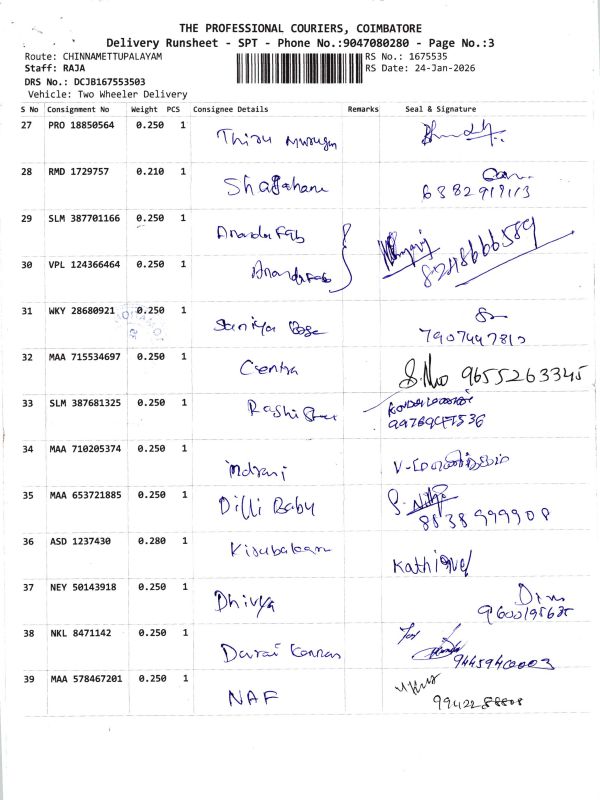 THE PROFESSIONAL COURIERS, COIMBATORE
Delivery Runsheet - SPT - Phone No.:9047080280 - Page No.:3
Route: CHINNAMETTUPALAYAM RS No.: 1675535
Staff: RAJA RS Date: 24-Jan-2026
DRS No.: DCJB167553503
Vehicle: Two Wheeler Delivery
S No Consignment No Weight PCS Consignee Details Remarks Seal & Signature
27 PRO 18850564 0.250 1 Thiru Murugan
28 RMD 1729757 0.210 1 Shajahan
6382919113
29 SLM 387701166 0.250 1 Ananda Fab
8248666589
30 VPL 124366464 0.250 1 Ananda Fab
31 WKY 28680921 0.250 1 Saniya
7907447810
32 MAA 715534697 0.250 1 Centra 9655263345
33 SLM 387681325 0.250 1 Rashi
34 MAA 710205374 0.250 1 Indrani
35 MAA 653721885 0.250 1 Dilli Babu
8838999908
36 ASD 1237430 0.280 1 Kirubakaran
37 NEY 50143918 0.250 1 Dhivya
38 NKL 8471142 0.250 1 Durai Kannan For
9445940003
39 MAA 578467201 0.250 1 NAF